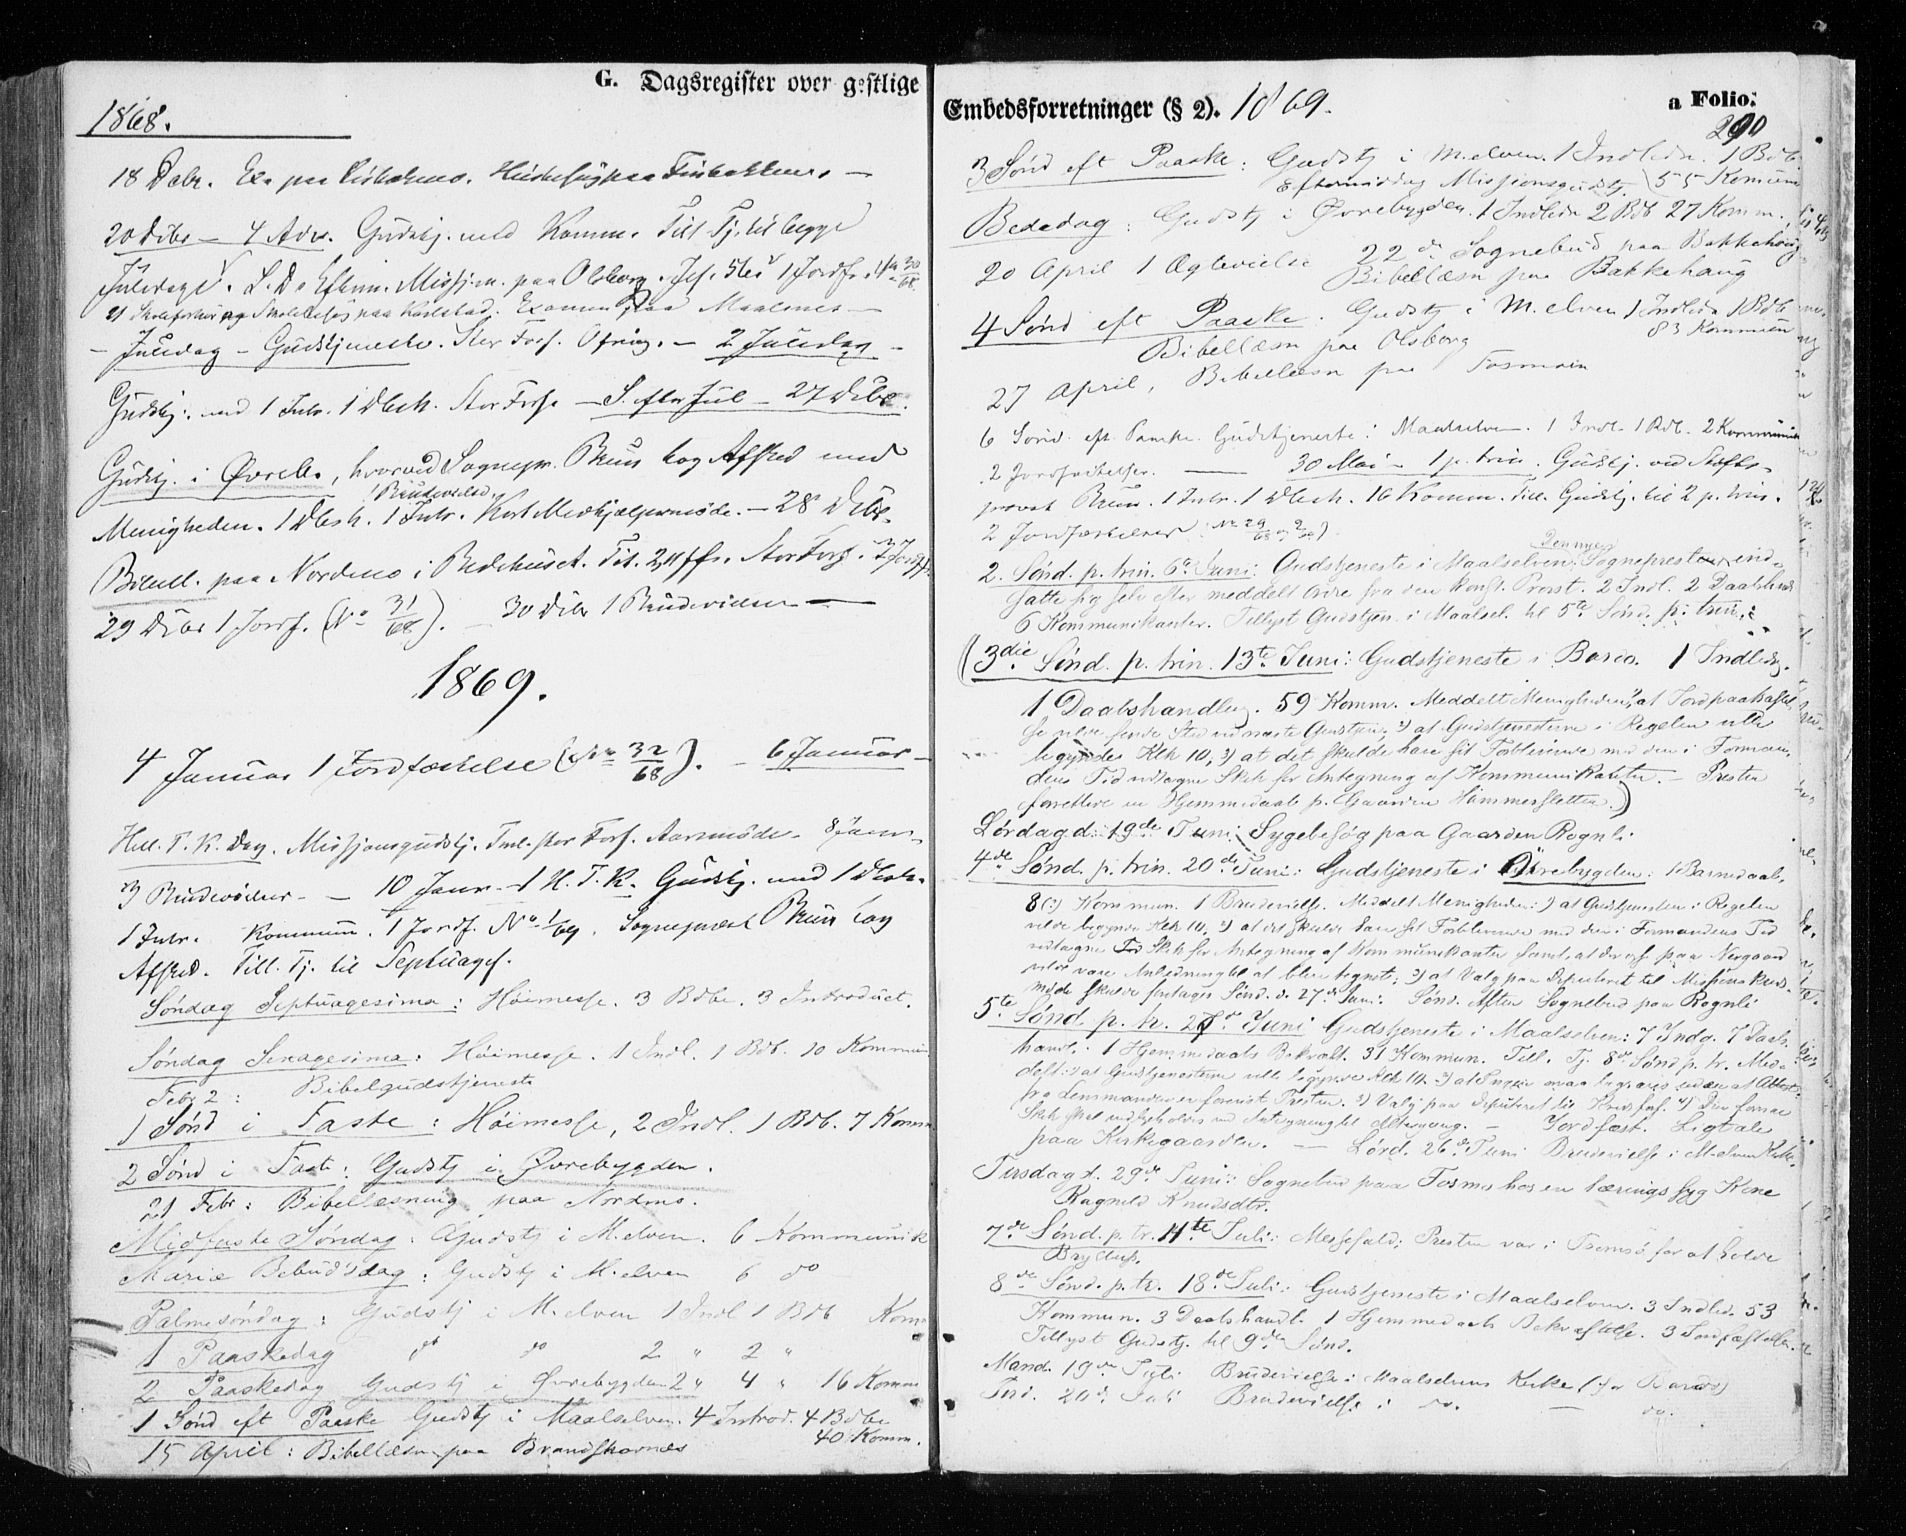 G. Dagsregister over gestlige
1868.
18 Debr. Ex. paa
20 Dibr – 4 Adv. Gudstj. med Komm. Till. Tj. til begge
Juledage. S. D. Efterm. Missj.m. paa Olsborg. 1 Jordf. 30/68
21 paa Karlstad. Examen paa Maalsnes –
– Juledag – Gudstjeneste. Stor Forf. Ofring. – 2 Juledag –
Gudstj. med 1 Intr. 1 Dbsh. Stor Forf. – S. efter Jul – 27 Dibr.
Gudstj. i Øvreb., hvorved Sognepr. Bruun tog Afsked med
1 Brudevielse.
Menigheden. 1 Dbsh. 1 Intr. Kort Medhjælpermøde. – 28 Dibr.
Bibell. paa Nordmo i Bedehuset. Stor Forf.
29 Dibr 1 Jordf. (No 31/68). – 30 Dibr 1 Brudevielse –
1869.
4 Januar 1 Jordfæstelse (No 32/68). – 6 Januar –
Hell. T. K. Dag. Missjonsgudstj. stor Forf. Aarsmøde. 8 Janr –
3 Brudevielser – – 10 Janr – 1 H. T. K. Gudstj. med 1 Dbsh.
1 Intr. Kommun. 1 Jordf. No 1/69. Sogneprest Bruun tog
Afsked. Till. Tj. til Septuages.
Søndag Septuagesima: Høimesse. 3 Bdbe. 3 Introduct.
Søndag Sexagesima: Høimesse. 1 Indl. 1 Bdb. 10 Kommun
Febr 2: Bibelgudstjeneste
1 Sønd i Faste: Høimesse, 2 Indl. 1 Bdb. 7 Komm
2 Sønd i Faste: Gudstj i Øvrebygden.
21 Febr: Bibellæsning paa Nordmo.
Midfaste Søndag: Gudstj i M.elven. 6 Kommunik
Mariæ Bebud'sdag: Gudstj i M.elven 6 do
Palmesøndag: Gudstj i M.elven 1 Indl 1 Bdb Komm
1 Paaskedag do do 2 " 2 "
2 Paaskedag Gudstj i Øvrebygden 2 " 4 " 16 Komm
1 Sønd eft Paaske Gudstj i Maalselven. 4 Introd. 4 Bdbe
40 Komm.
15 April: Bibellæsn paa Brandskognes
Embedsforretninger (§ 2). 1869.
a Folio:
290
3 Sønd eft Paaske: Gudstj i M.elven. 1 Indledn. 1 Bdb
Eftermiddag Missionsgudstj. 55 Kommun
Bededag: Gudstj i Øvrebygden. 1 Indledn 2 Bdb 27 Komm.
22de Sognebud paa Bakkehaug
20 April 1 Ægtevielse Bibellæsn paa Bakkehaug
4 Sønd eft Paaske. Gudstj i M.elven 1 Indledn 1 Bdb
83 Kommun
Bibellæsn paa Olsborg
27 April, Bibellæsn paa Fosmoen
6 Sønd. eft. Paaske. Gudstjeneste i Maalselven. 1 Indl. 1 Bdb. 2 Kommunik
2 Jordfæstelser. – 30 Mai – 1 p. trin. Gudstj. ved Stifts-
provst Bruun. 1 Intr. 1 Dbsh. 16 Komm. Till. Gudstj. til 2 p. trin.
2 Jordfæstelser (No 29/68
Den nye
2. Sønd. p. trin. 6te Juni: Gudstjeneste i Maalselven. Sognepresten ind-
satte sig selv efter meddelt Ordre fra den konst. Provst. 2 Indl. 2 Daabshand
6 Kommunikanter. Tillyst Gudstjen. i Maalsel. til 5te Sønd. p. trin.:
(3die Sønd. p. trin. 13te Juni: Gudstjeneste i Bardo. 1 Indledn.
1 Daabshandling. 59 Komm. Meddelt Menigheden, at Jordpaakastel-
se vilde finde Sted ved næste Gudstjen, 2) at Gudstjenesterne i Regelen ville
begyndes Klk 10, 3) at det skulde have sit Forblivende med den i Forman-
dens Tid vedtagne Skik for Antegning af Kommunikanter. – Presten
forrettede en Hjemmedaab p. Gaarden Hammersletten.)
Lørdag d. 19de Juni Sygebesøg paa Gaarden Rognli.
4de Sønd. p. trin. 20de Juni: Gudstjeneste i Øvrebygden: 1 Barnedaab.
8 (?) Kommun. 1 Brudevielse. Meddelt Menigheden: 1) at Gudstjenesten i Regelen
vilde begynde Klk 10, 2) at det skulde have sit Forblivende med den i Formandens Tid
vedtagne Skik for Antegning af Kommunikanter samt, at der paa Nergaard
vilde være Anledning til at blive tegnet; 3) at Valg paa Deputeret til Missionskreds-
møde skulde foretages Sønd. d. 27de Juni. Sønd. Aften Sognebud paa Rognli
5te Sønd. p. tr. 27de Juni Gudstjeneste i Maalselven: 7 Indg. 7 Daabs
handl. 1 Hjemmedaabs Bekræft. 31 Kommun. Till. Tj. 8de Sønd p. tr. Med-
delt: 1) at Gudstjenesterne ville begynde Klk 10. 2) at Ingen maa begraves uden at Attest
fra Lensmanden er forevist Presten. 3) Valg paa Deputeret til Kredsfors. 4) Den forrige
Skik skal vedbeholdes ved Antegning til Altergang. – Jordfæst. Ligtale
paa Kirkegaarden. – Lørd. 26de Juni Brudevielse i M.elven Kirke.
Tirsdag d. 29de Juni: Sognebud paa Fosmo hos en tæringssyg Kone
Ragnild Knudsdtr.
7de Sønd. p. tr. 11te Juli: Messefald; Presten var i Tromsø for at holde
Bryllup.
8de Sønd. p. tr. 18de Juli: Gudstjeneste i Maalselven. 3 Indled. 53
Kommun. 3 Daabshandl. 1 Hjemmedaabs Bekræftelse. 3 Jordfæstelser.
Tillyst Gudstj. til 9de Sønd.
Mand. 19de Juli Brudevielse i Maalselvens Kirke (for Bardo)
Tirsd. 20de Juli Brudevielse i do. – do.